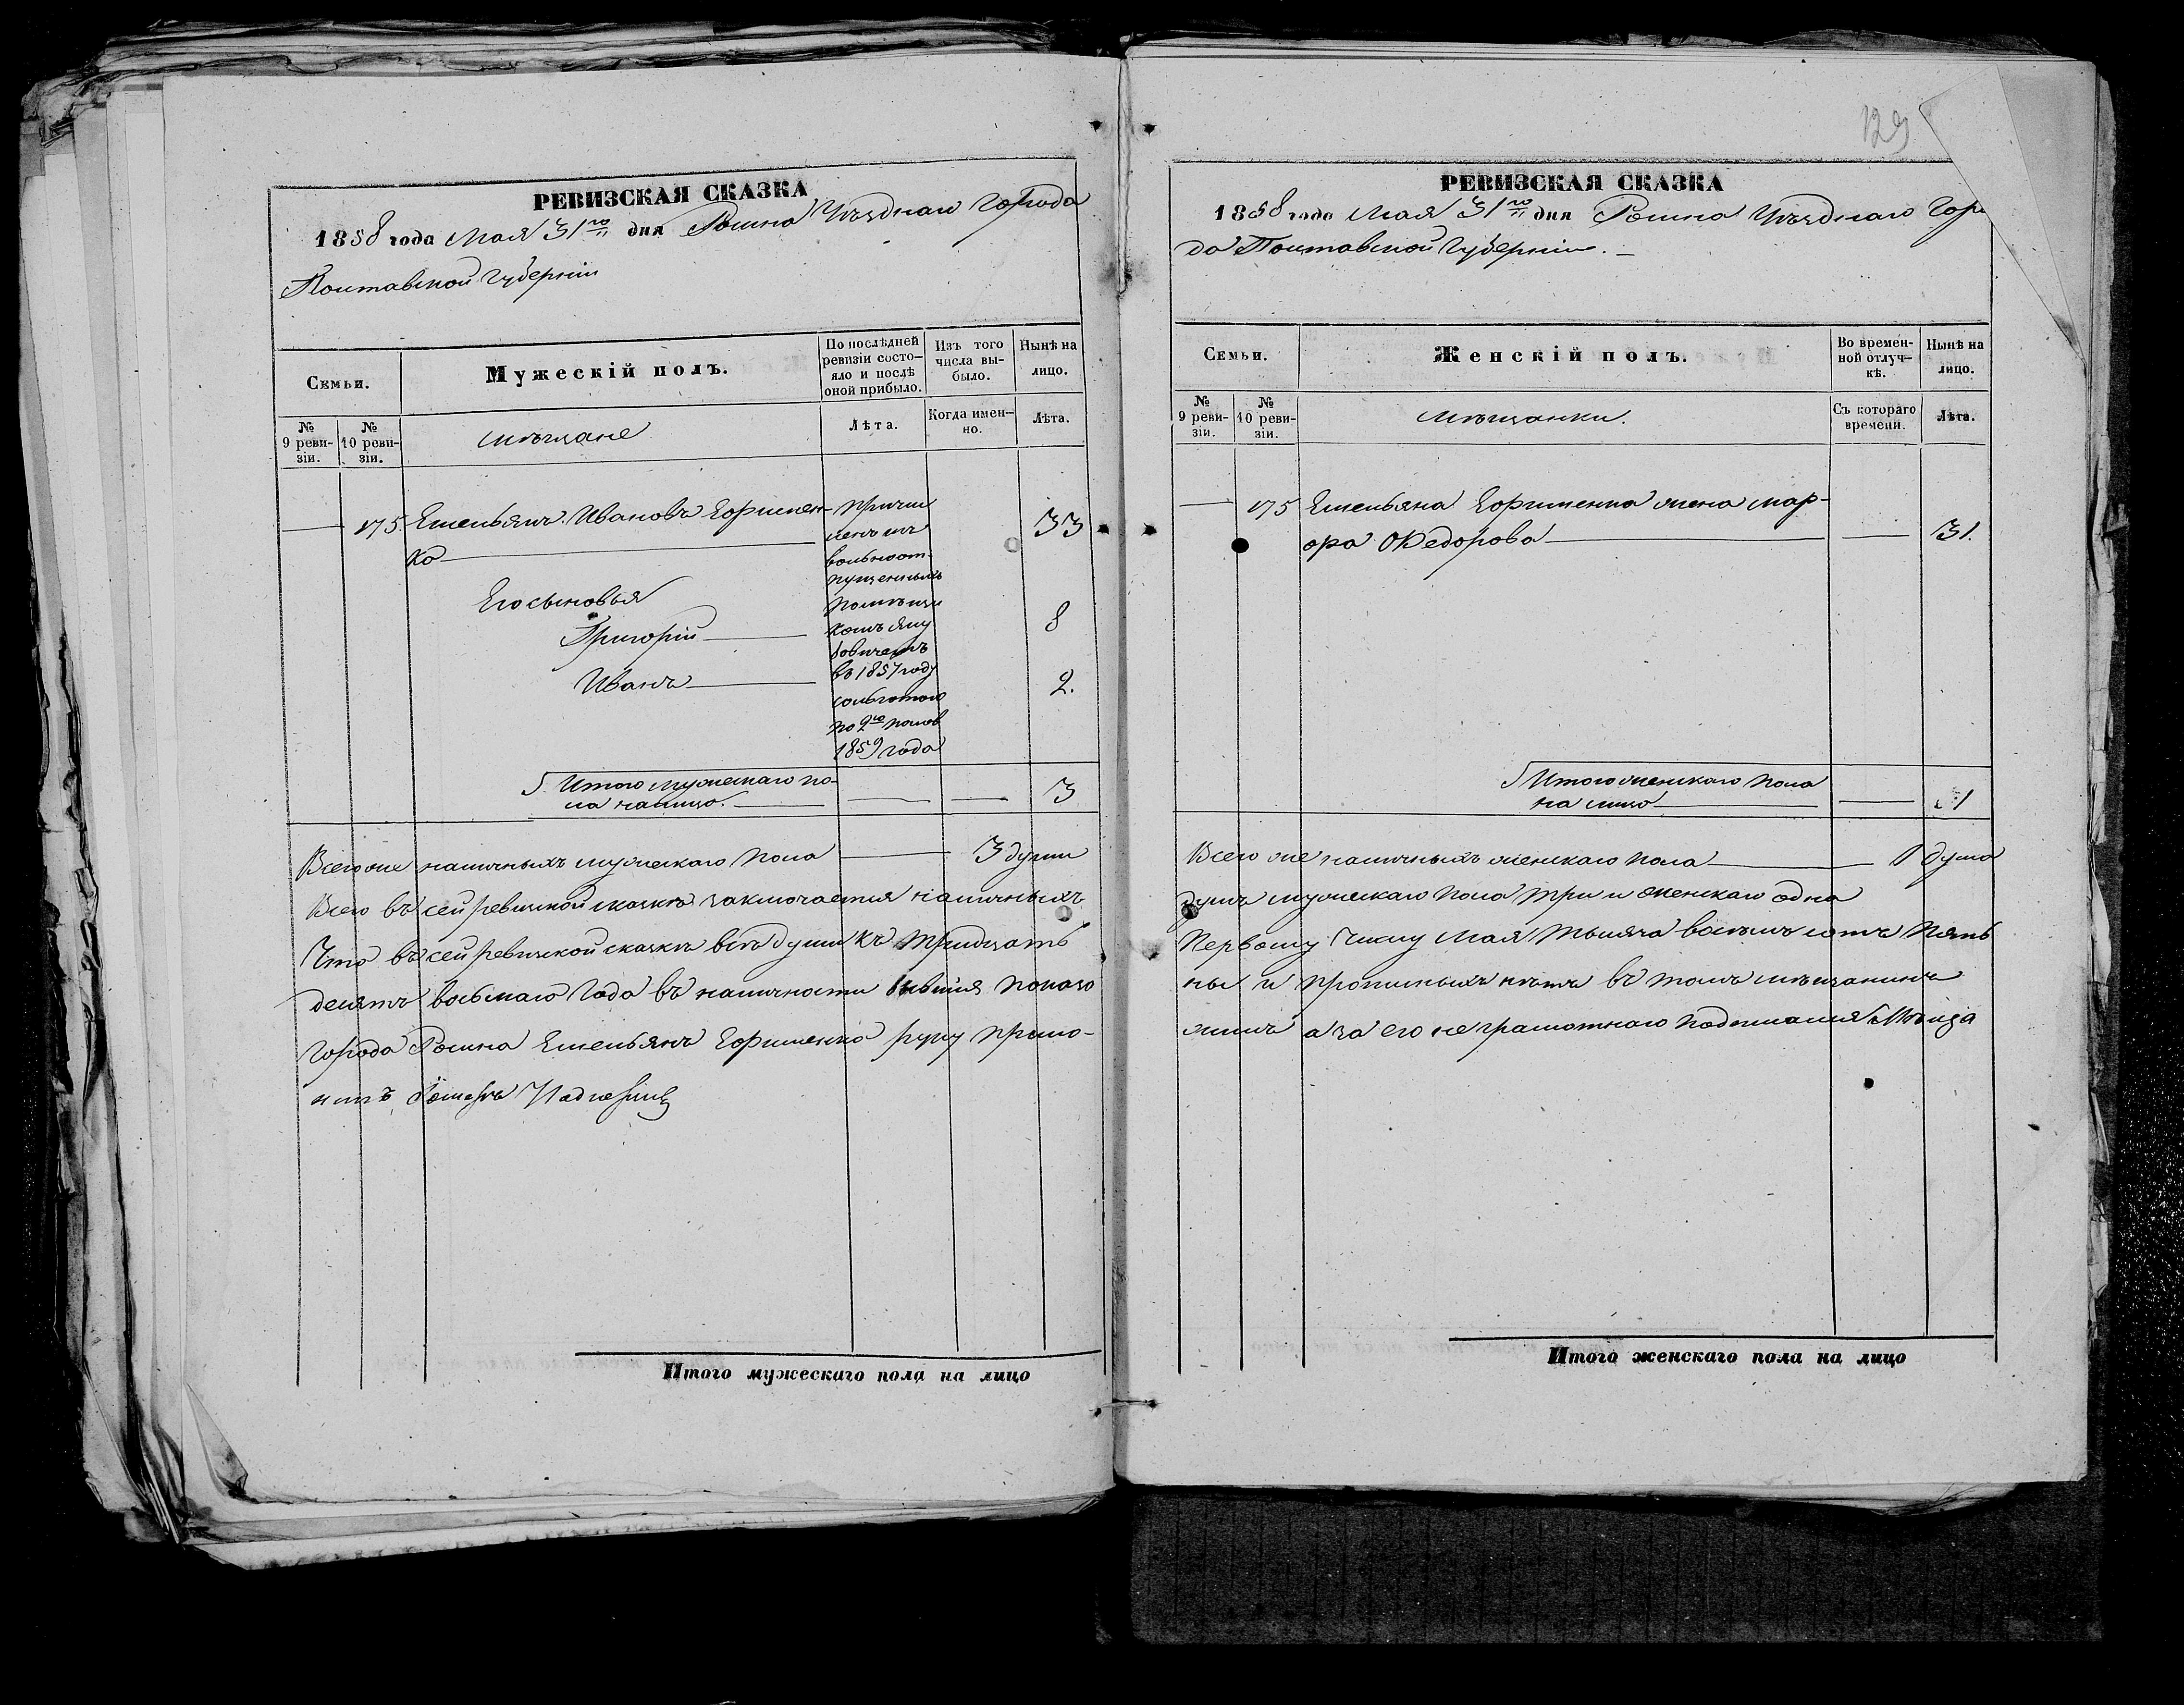 РЕВИЗСКАЯ СКАЗКА
1858 года Мая 31го дня Ромна Уѣзднаго Города
Полтавской Губерніи
Семьи.
Мужескій полъ.
По послѣдней ревизіи состо-
яло и послѣ
оной прибыло.
Изъ того
числа вы-
было.
Нынѣ на
лицо.
№
9 реви-
зіи.
№
10 реви-
зіи.
мѣщане
Лѣта.
Когда имен-
но.
Лѣта.
175. Емельянъ Ивановъ Горшен-
ко
33
Его сыновья
Григорій
8
Иванъ
2.
причи
ленъ изъ
вольноот-
пущенныхъ
помѣщи
комъ
въ 1857 году
сольготою
по 2ю полов
1859 года
Итого мужескаго по-
ла налицо. 3
Всего же наличныхъ мужескаго пола 3 души
Всего въ сей ревизской сказкѣ заключается наличныхъ
Что въ сей ревизской сказкѣ всѣ души къ тридцать
десятъ восьмаго Года въ наличности бывшія показа
Города Ромна Емельянъ Горшенко руку прило-
нинъ
Итого мужескаго пола на лицо
129
РЕВИЗСКАЯ СКАЗКА
1858 года Мая 31го дня Ромна Уѣзднаго Горо
да Полтавской Губерніи.
Семьи.
Женскій полъ.
Во времен-
ной отлуч-
кѣ.
Нынѣ на
лицо.
№
9 реви-
зіи.
№
10 реви-
зіи.
мѣщанки.
Съ котораго
времени.
Лѣта.
175 Емельяна Горшенка жена Мар-
фа Федорова 31.
Итого женскаго пола
на лицо 1
Всего же наличныхъ женскаго пола 1 душа
душъ мужескаго пола три и женскаго одна
Первому числу Мая тысяча восемь сотъ пять
ны и прописныхъ нѣтъ въ томъ мѣщанинъ
жилъ а за его неграмотнаго подписался Мѣща
Итого женскаго пола на лицо